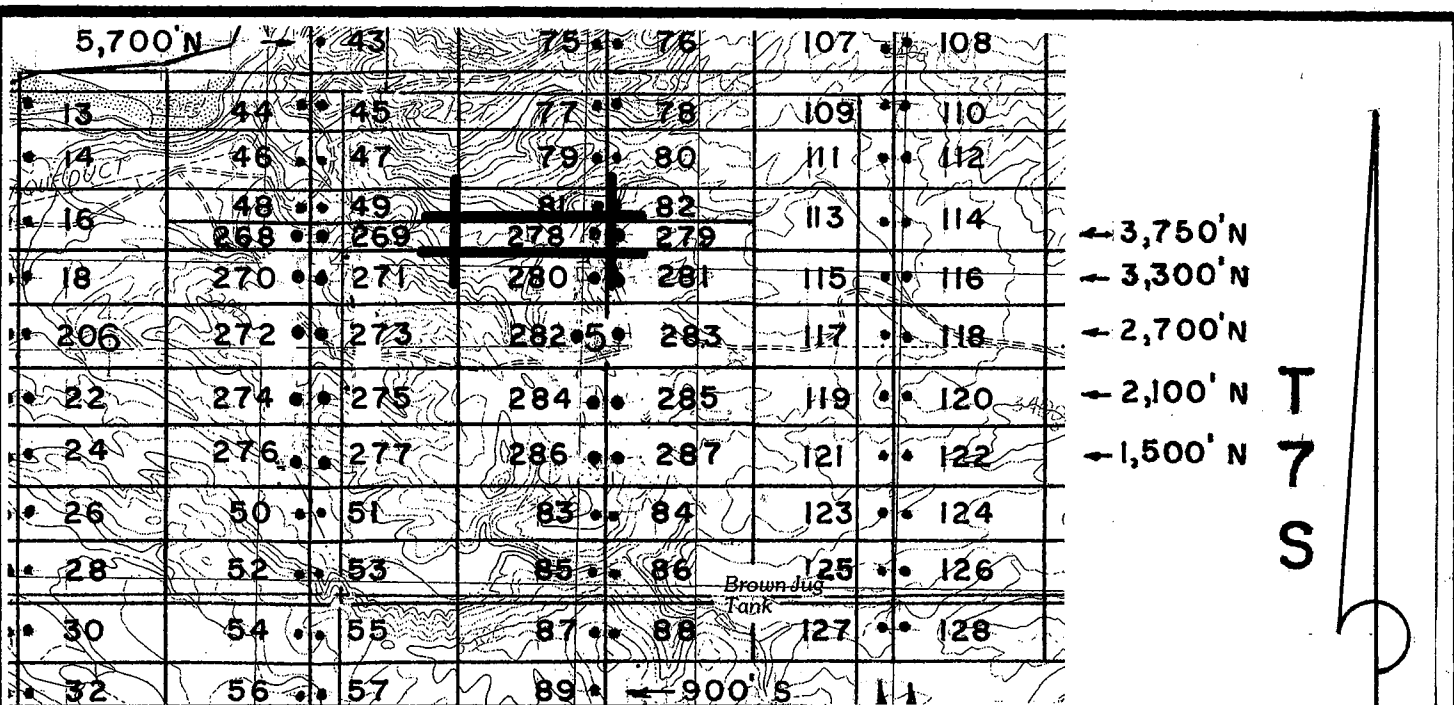 5,700'N 43 75 76 107 108
13 44 45 77 78 109 110
14 46 47 79 80 111 112
QUEDUCT
48 49 81 82
16 113 114
268 269 278 279 3,750'N
18 270 271 280 281 115 116 3,300'N
206 272 273 282 5 283 117 118 2,700'N
22 274 275 284 285 119 120 2,100' N
T
24 276 277 286 287 121 122 1,500' N
7
26 50 51 83 84 123 124
S
28 52 53 85 86 125 126
Brown Jug
Tank
30 54 55 87 88 127 128
32 56 57 89 900' S